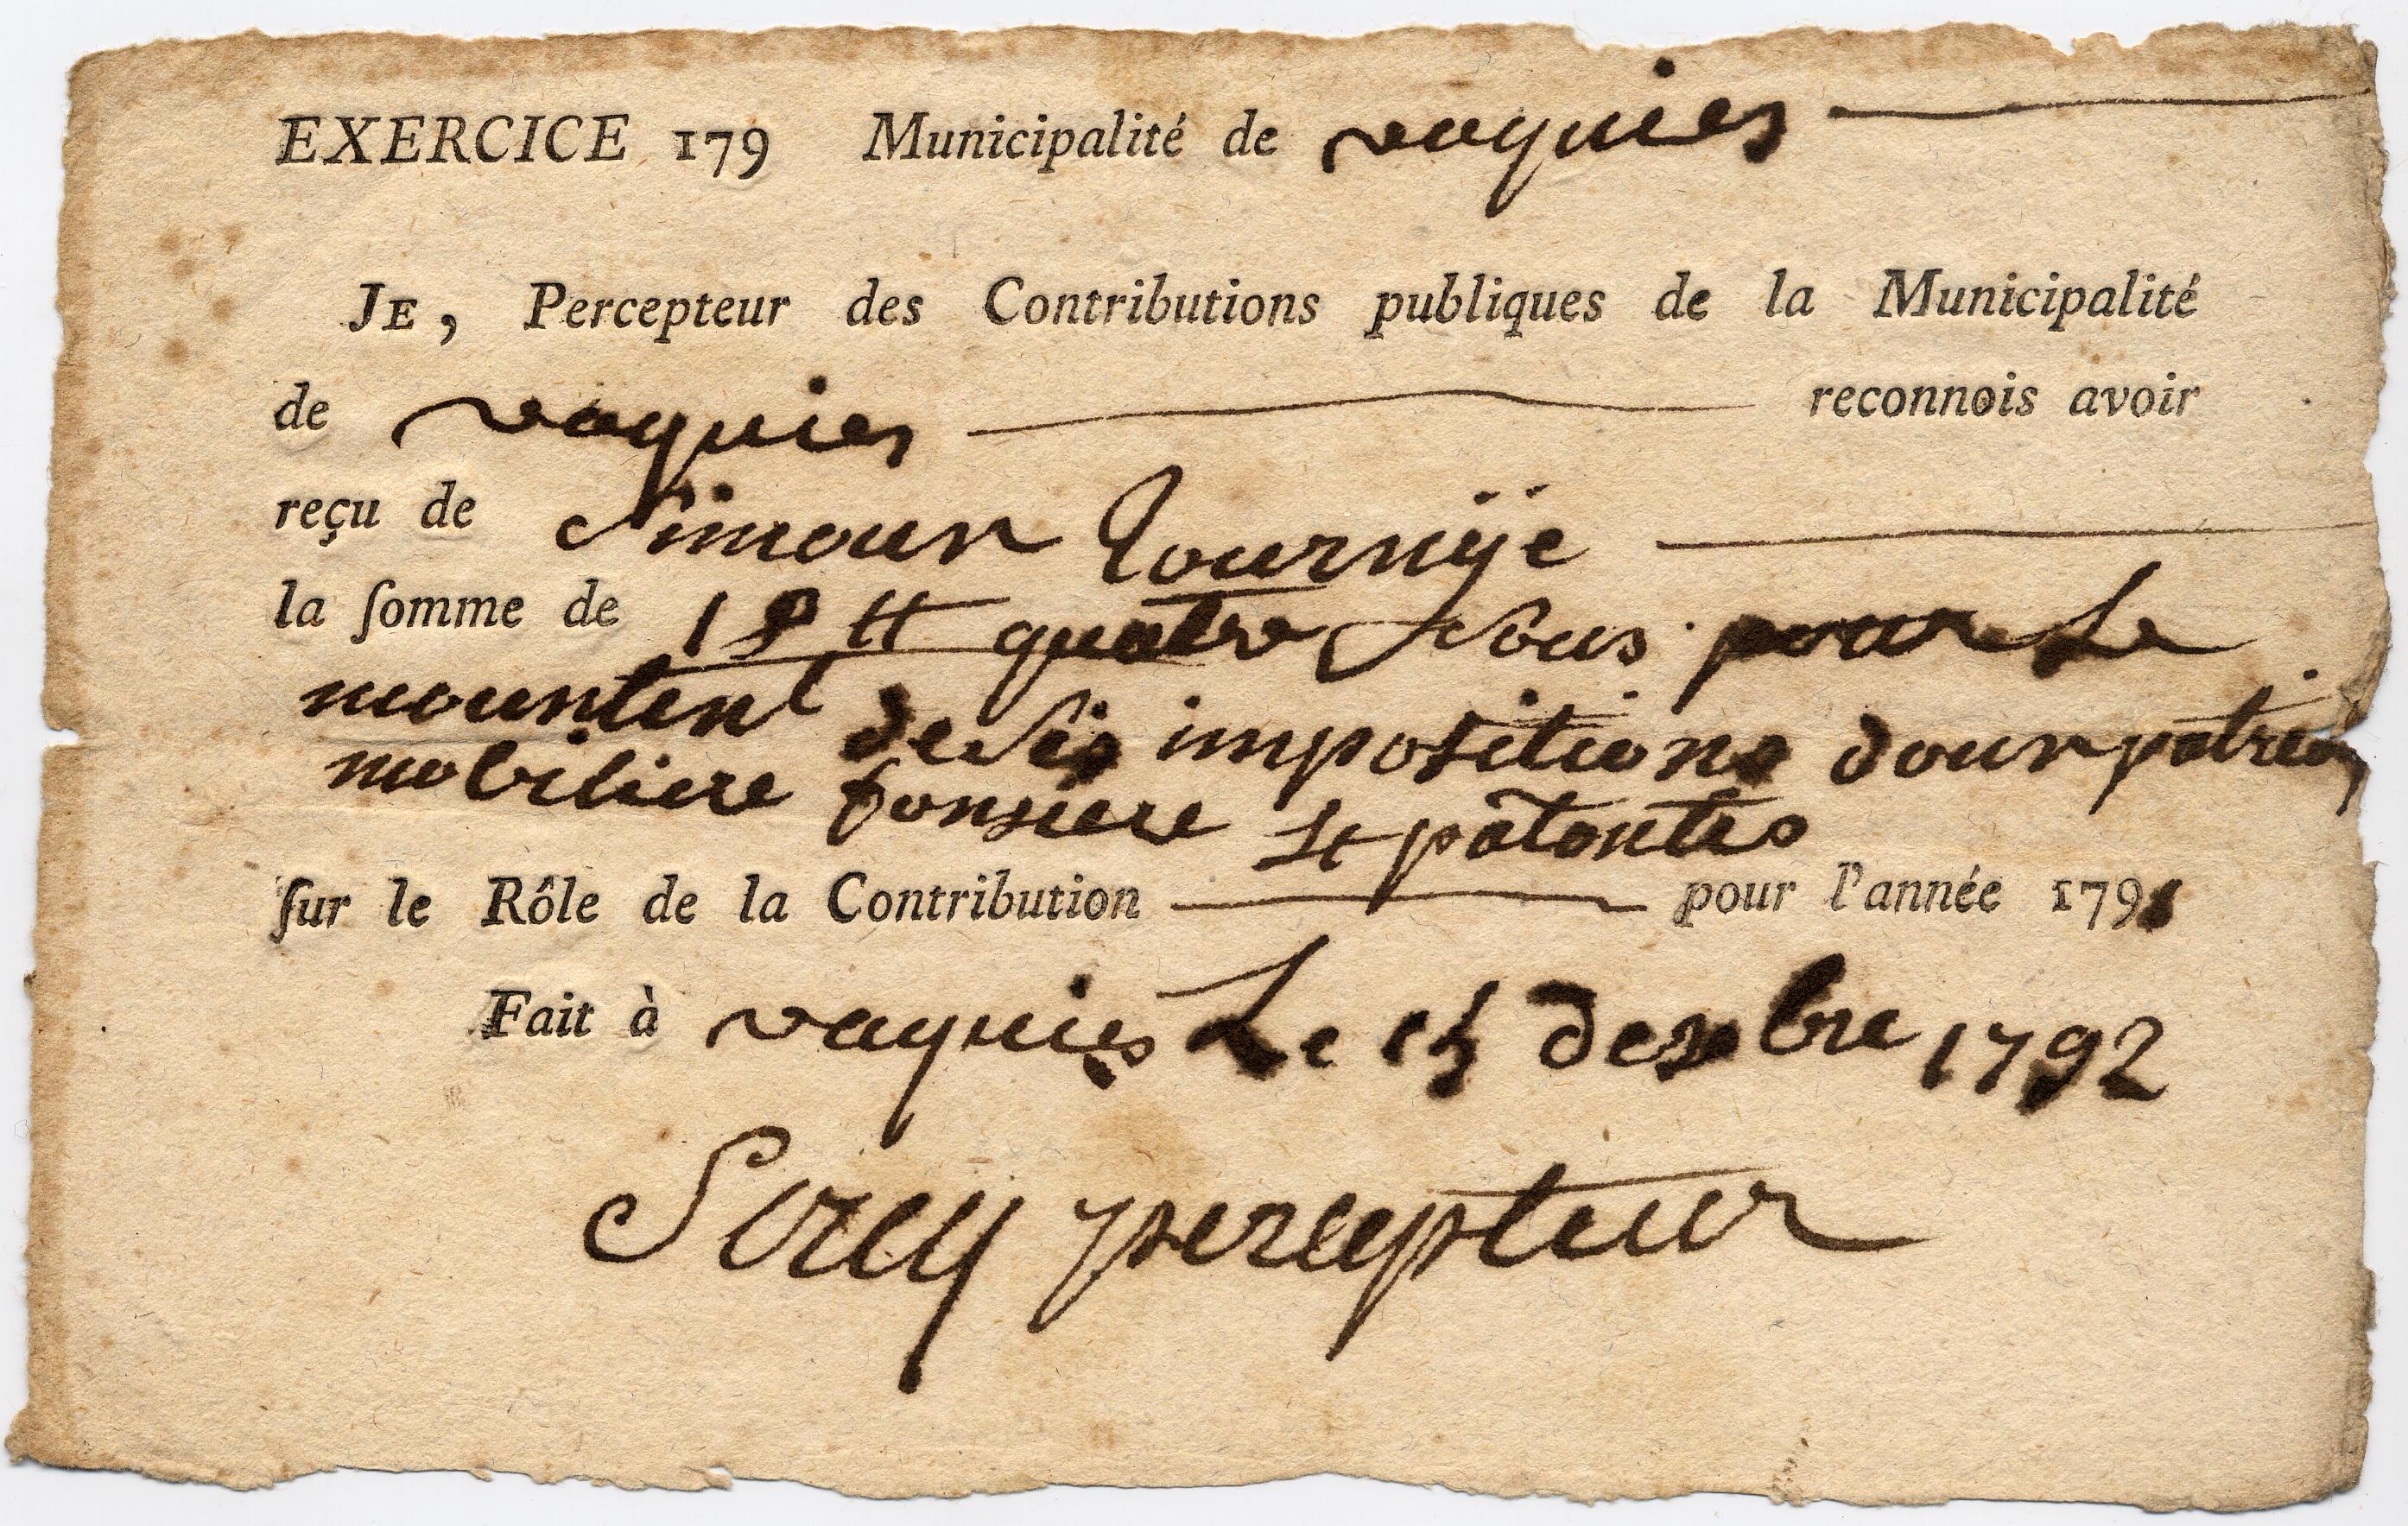 EXERCICE 179 Municipalité de vaquies
JE, Percepteur des Contributions publiques de la Municipalité
de vaquies reconnois avoir
reçu de Simoun tournÿe
la ſomme de 18 tt quatre sous pour Le
mountent de Ses impositions dour patrien
mobiliere fonsiere et patantes
ſur le Rôle de la Contribution pour l'année 1791
Fait à vaquies Le 15 desembre 1792
Sirey percepteur